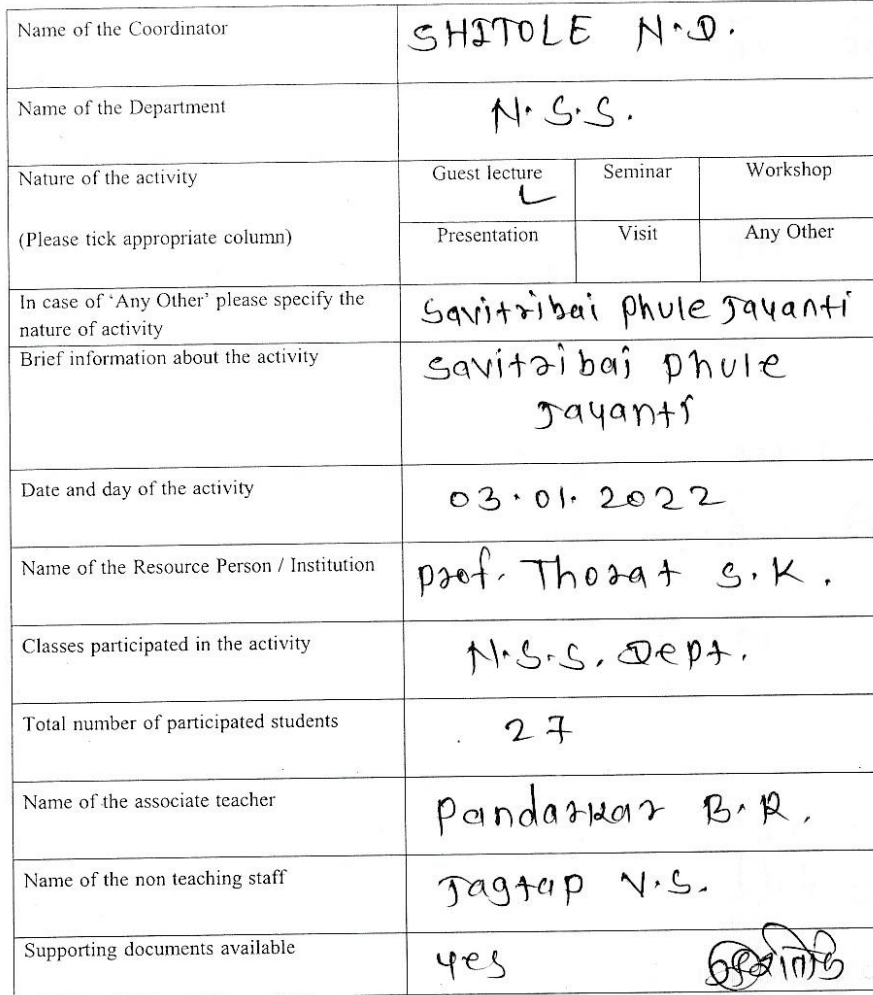 Name of the Coordinator SHITOLE N.D.
Name of the Department N.S.S.
Nature of the activity Guest lecture Seminar Workshop
(Please tick appropriate column) Presentation Visit Any Other
In case of 'Any Other' please specify the
nature of activity Savitribai Phule Jayanti
Brief information about the activity Savitribai Phule
Jayanti
Date and day of the activity 03.01.2022
Name of the Resource Person / Institution Prof. Thorat S.K.
Classes participated in the activity N.S.S. Dept.
Total number of participated students 27
Name of the associate teacher Pandarkar B.R.
Name of the non teaching staff Jagtap V.S.
Supporting documents available yes